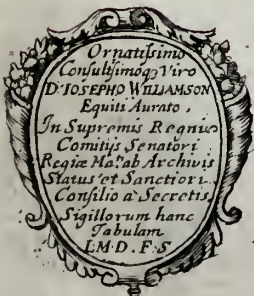 Ornatissimo
Consultissimoq, Viro
D. IOSEPHO WILLIAMSON
Equiti Aurato,
In Supremis Regnis
Comitijs Senatori
Regiæ Ma.ti ab Archivis
Status et Sanctiori
Consilio a Secretis
Sigillorum hanc
Tabulam
I.M.D.F.S